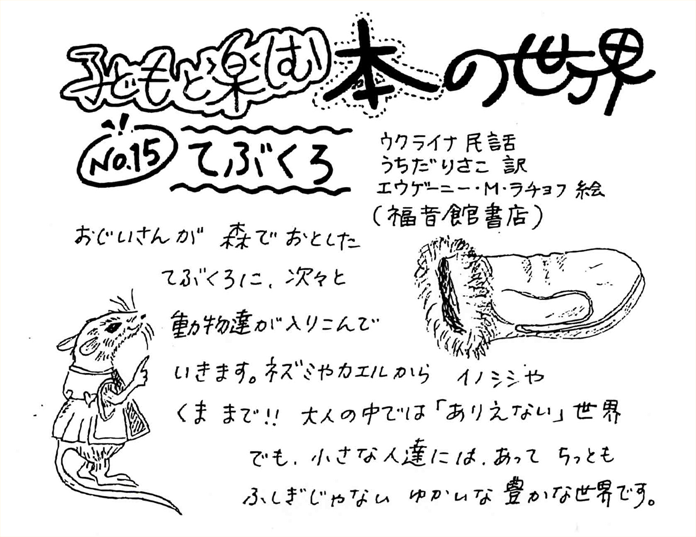 子どもと楽しむ本の世界
No.15 てぶくろ
ウクライナ民話
うちだりさこ 訳
エウゲーニー・M・ラチョフ 絵
(福音館書店)
おじいさんが 森で おとした
てぶくろに、次々と
動物達が入りこんで
いきます。ネズミやカエルから イノシシや
くま まで!! 大人の中では「ありえない」世界
でも、小さな人達には、あって ちっとも
ふしぎじゃない ゆかいな 豊かな世界です。